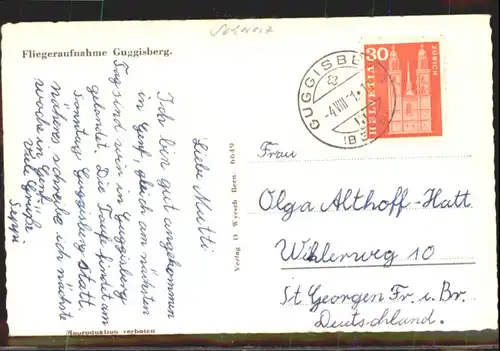 Schweiz
Fliegeraufnahme Guggisberg.
Liebe Mutti
Ich bin gut angekommen
in Genf, gleich am nächsten
Tag sind wir in Guggisberg
gelandet. Die Taufe findet am
Sonntag Guggisberg statt.
Näheres schreibe ich nächste
woche in Genf.
Viele Grüße
Seppi
Verlag O Wyrsch Bern. 6649
Reproduktion verboten
GUGGISBERG
-4.VIII
30
HELVETIA
ZÜRICH
Frau
Olga Althoff-Hatt
Wihlerweg 10
St. Georgen Fr. i. Br.
Deutschland.